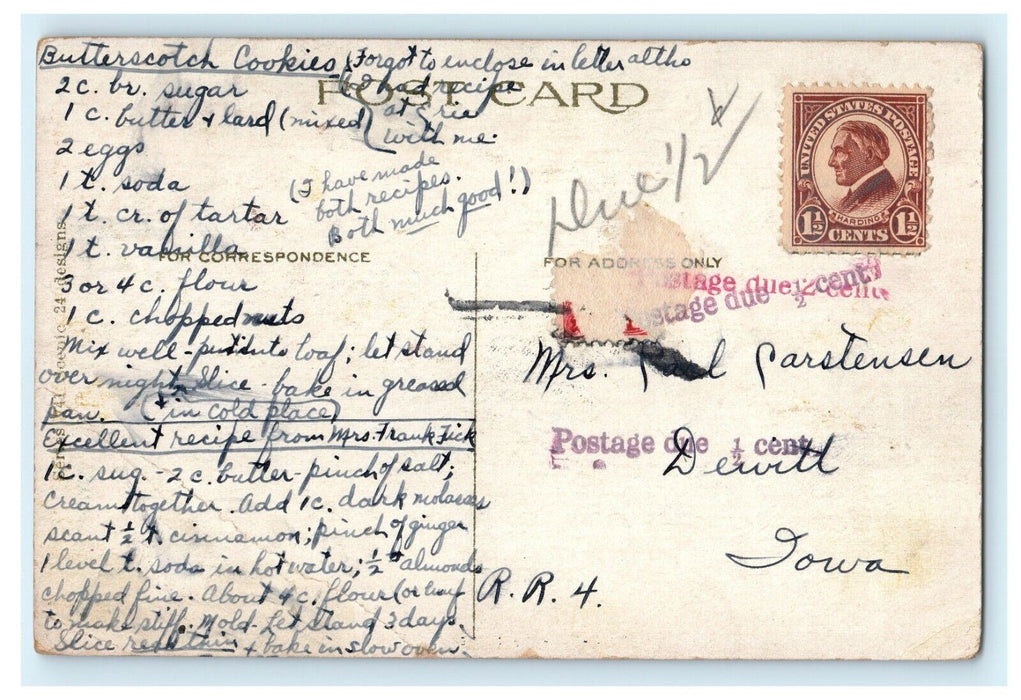 Butterscotch Cookies (Forgot to enclose in letter altho
I had recipe
at Erie
with me.
POST CARD
2 c. br. sugar
1 c. butter & lard (mixed)
2 eggs
1 t. soda
1 t. cr. of tartar
(I have made
both recipes.
Both much good!)
1 t. vanilla
FOR CORRESPONDENCE
3 or 4 c. flour
1 c. chopped nuts
Mix well - put into loaf; let stand
over night. Slice - bake in greased
pan. (in cold place)
Excellent recipe from Mrs. Frank Fick
1 c. sug. - 2 c. butter - pinch of salt;
cream together. Add 1 c. dark molasses
scant ½ t. cinnamon; pinch of ginger
1 level t. soda in hot water; ½ # almonds
chopped fine. About 4 c. flour (or
to make stiff. Mold. Let stand 3 days.
Slice real thin & bake in slow oven.
24 designs
Due ½
UNITED STATES POSTAGE
HARDING
1½ CENTS 1½
FOR ADDRESS ONLY
Postage due ½ cent
Postage due ½ cent
Mrs. Paul Carstensen
Postage due ½ cent
Dewitt
Iowa
R. R. 4.